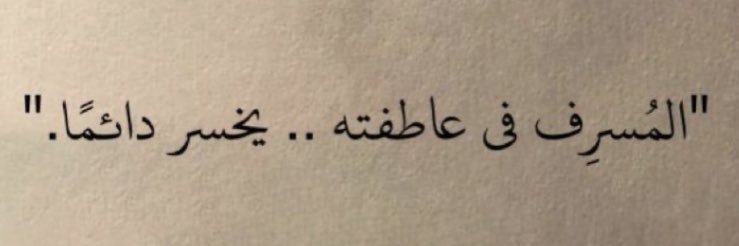 "المُسرِف فى عاطفته .. يخسر دائمًا."